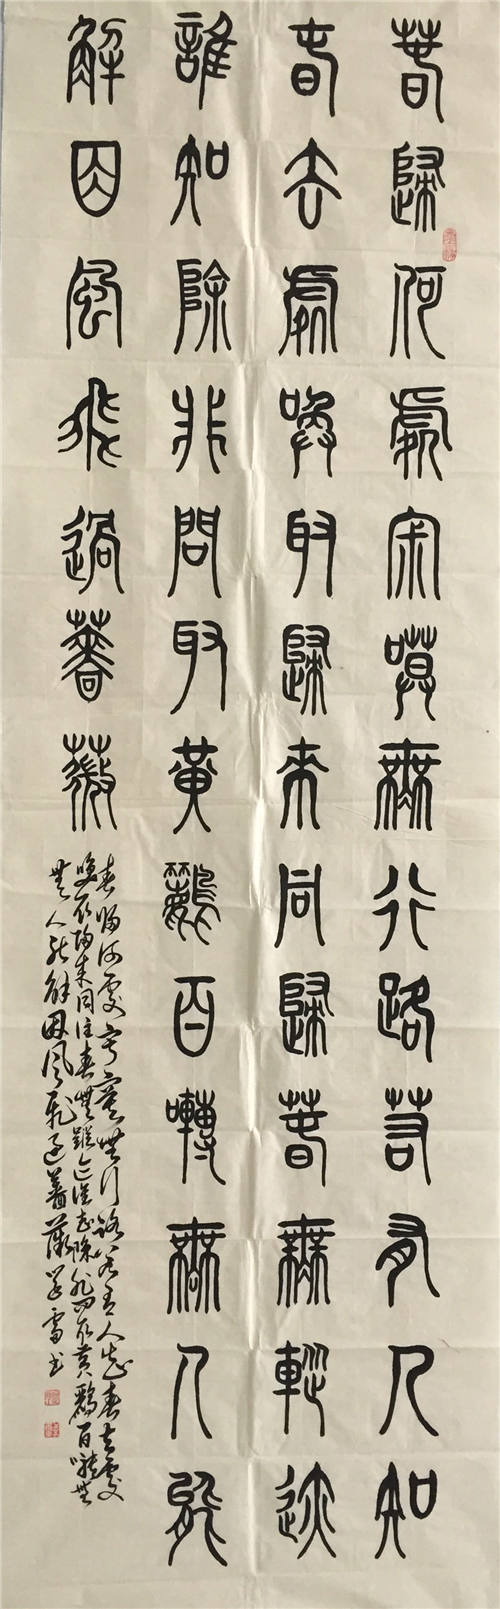 春歸何處宋嗼無行路若有人知
春去處喚取歸來同歸春無蹤迹
誰知除非問取黃鸝百囀無人能
解因風飛過薔薇
春歸何處寂寞無行路若有人知春去處
喚取歸來同住春無蹤迹誰知除非問取黃鸝百囀無
無人能解因風飛過薔薇書